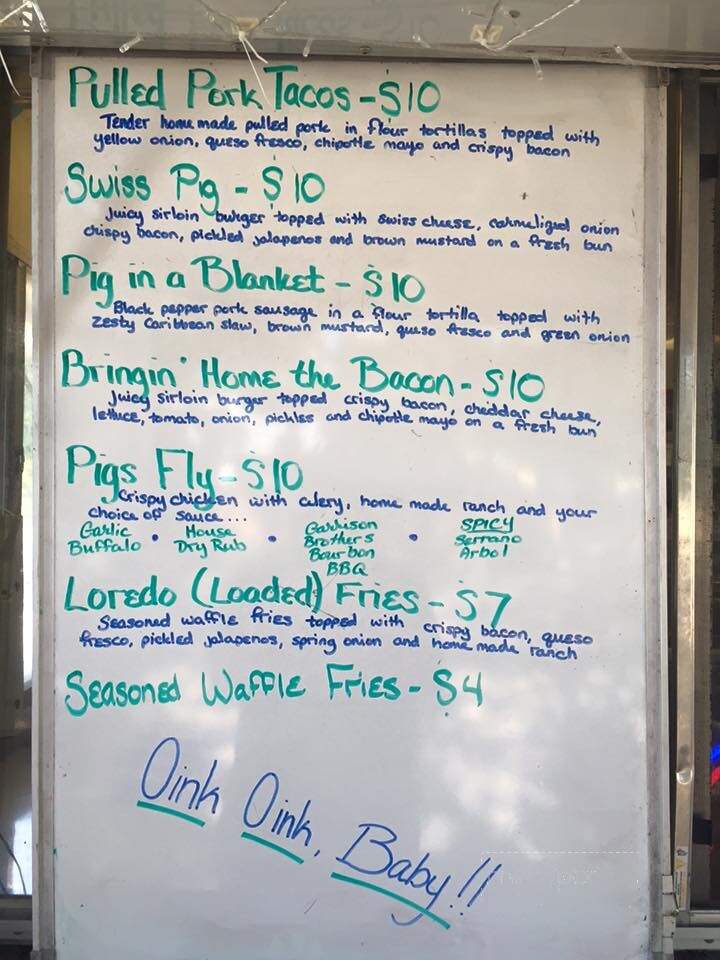 Pulled Pork Tacos - $10
Tender home made pulled pork in flour tortillas topped with
yellow onion, queso fresco, chipotle mayo and crispy bacon
Swiss Pig - $10
Juicy sirloin burger topped with swiss cheese, carmelized onion
crispy bacon, pickled jalapenos and brown mustard on a fresh bun
Pig in a Blanket - $10
Black pepper pork sausage in a flour tortilla topped with
zesty Caribbean slaw, brown mustard, queso fresco and green onion
Bringin' Home the Bacon - $10
Juicy sirloin burger topped crispy bacon, cheddar cheese,
lettuce, tomato, onion, pickles and chipotle mayo on a fresh bun
Pigs Fly - $10
Crispy chicken with celery, home made ranch and your
choice of sauce...
Garlic Buffalo • House Dry Rub • Garrison Brothers Bourbon BBQ • SPICY Serrano Arbol
Loredo (Loaded) Fries - $7
Seasoned waffle fries topped with crispy bacon, queso
fresco, pickled jalapenos, spring onion and home made ranch
Seasoned Waffle Fries - $4
Oink Oink, Baby!!